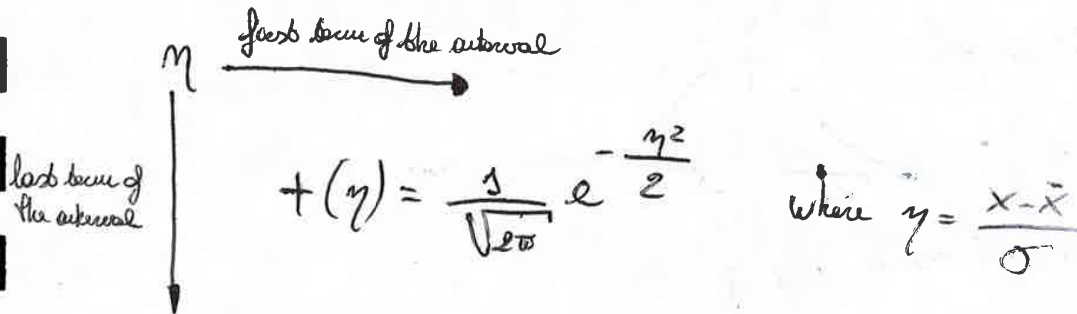 first term of the interval
η
last term of
the interval
f(η) = 1/√2π e^(-η²/2) where η = (x - x̄)/σ